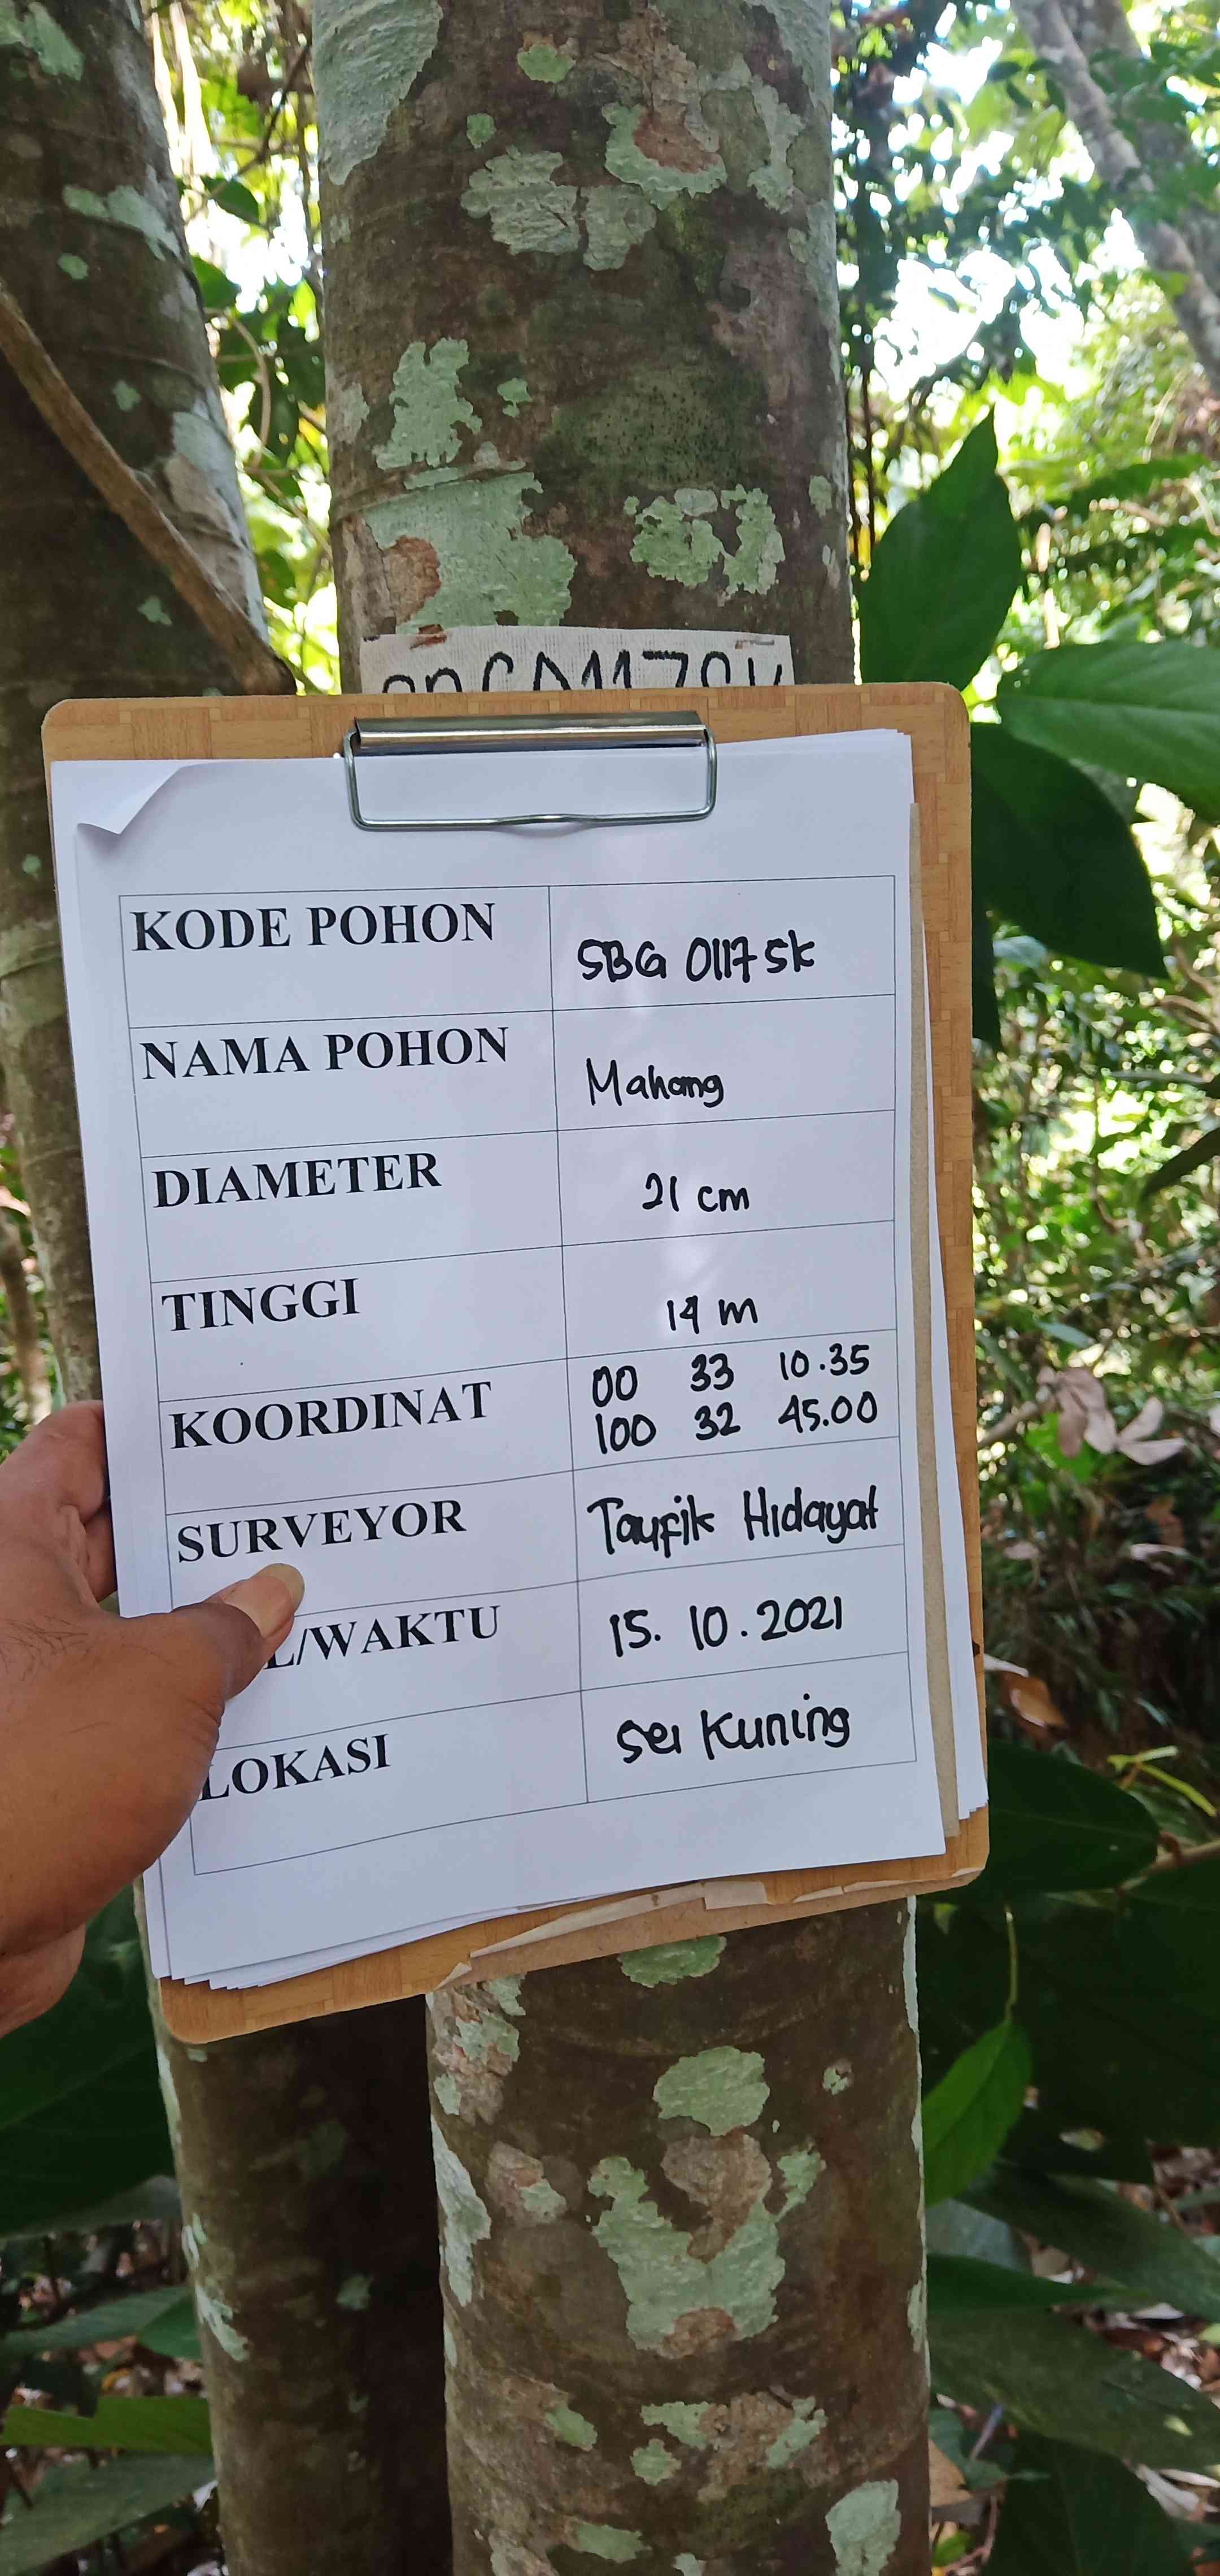 KODE POHON SBG 0117 SK
NAMA POHON Mahang
DIAMETER 21 cm
TINGGI 14 m
KOORDINAT 00 33 10.35
100 32 45.00
SURVEYOR Taufik Hidayat
/WAKTU 15. 10. 2021
LOKASI Sei Kuning